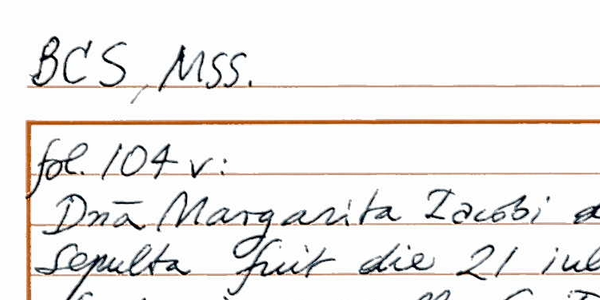 BCS, Mss.
fol. 104 v:
Dnā Margarita Iacobi
sepulta fuit die 21 iul